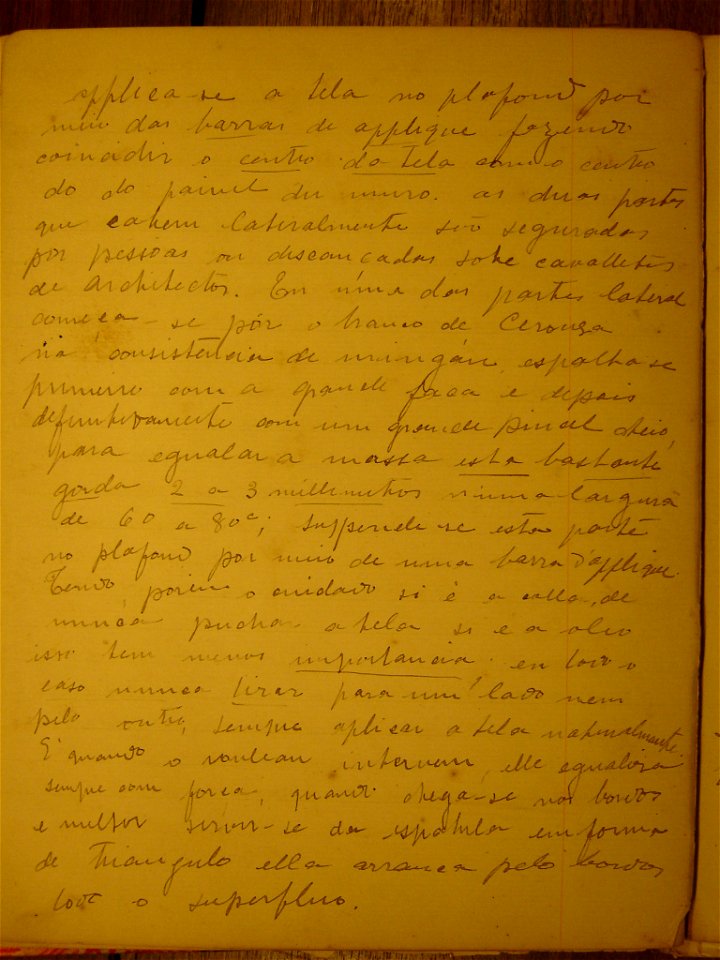 applica-se a tela no plafond por
meio das barras de applique fazendo
coincidir o centro da tela com o centro
do do painel du muro. as duas partes
que cahem lateralmente são seguradas
por pessoas ou descançadas sobre cavalletes
de architectos. Em uma das partes lateral
começa-se pôr o branco de Cerouza
na consistencia de mingáu, espalha-se
primeiro com a grande faca e depois
definitivamente com um grande pincel cheio,
para egualar a massa esta bastante
gorda 2 a 3 millimetros numa largura
de 60 a 80c; suspende-se esta parte
no plafond por meio de uma barra d'applique.
Tendo, porem o cuidado si é a colla, de
nunca puchar a tela si e a oleo
isso tem menos importancia, en todo o
caso nunca tirar para um lado nem
pelo outro, sempre aplicar a tela naturalmente.
E quando o rouleau intervem, elle egualisa
sempre com força, quando chega-se nos bordos
e melhor servir-se da espatula em forma
de triangulo ella arranca pelo bordos
todo o superfluo.